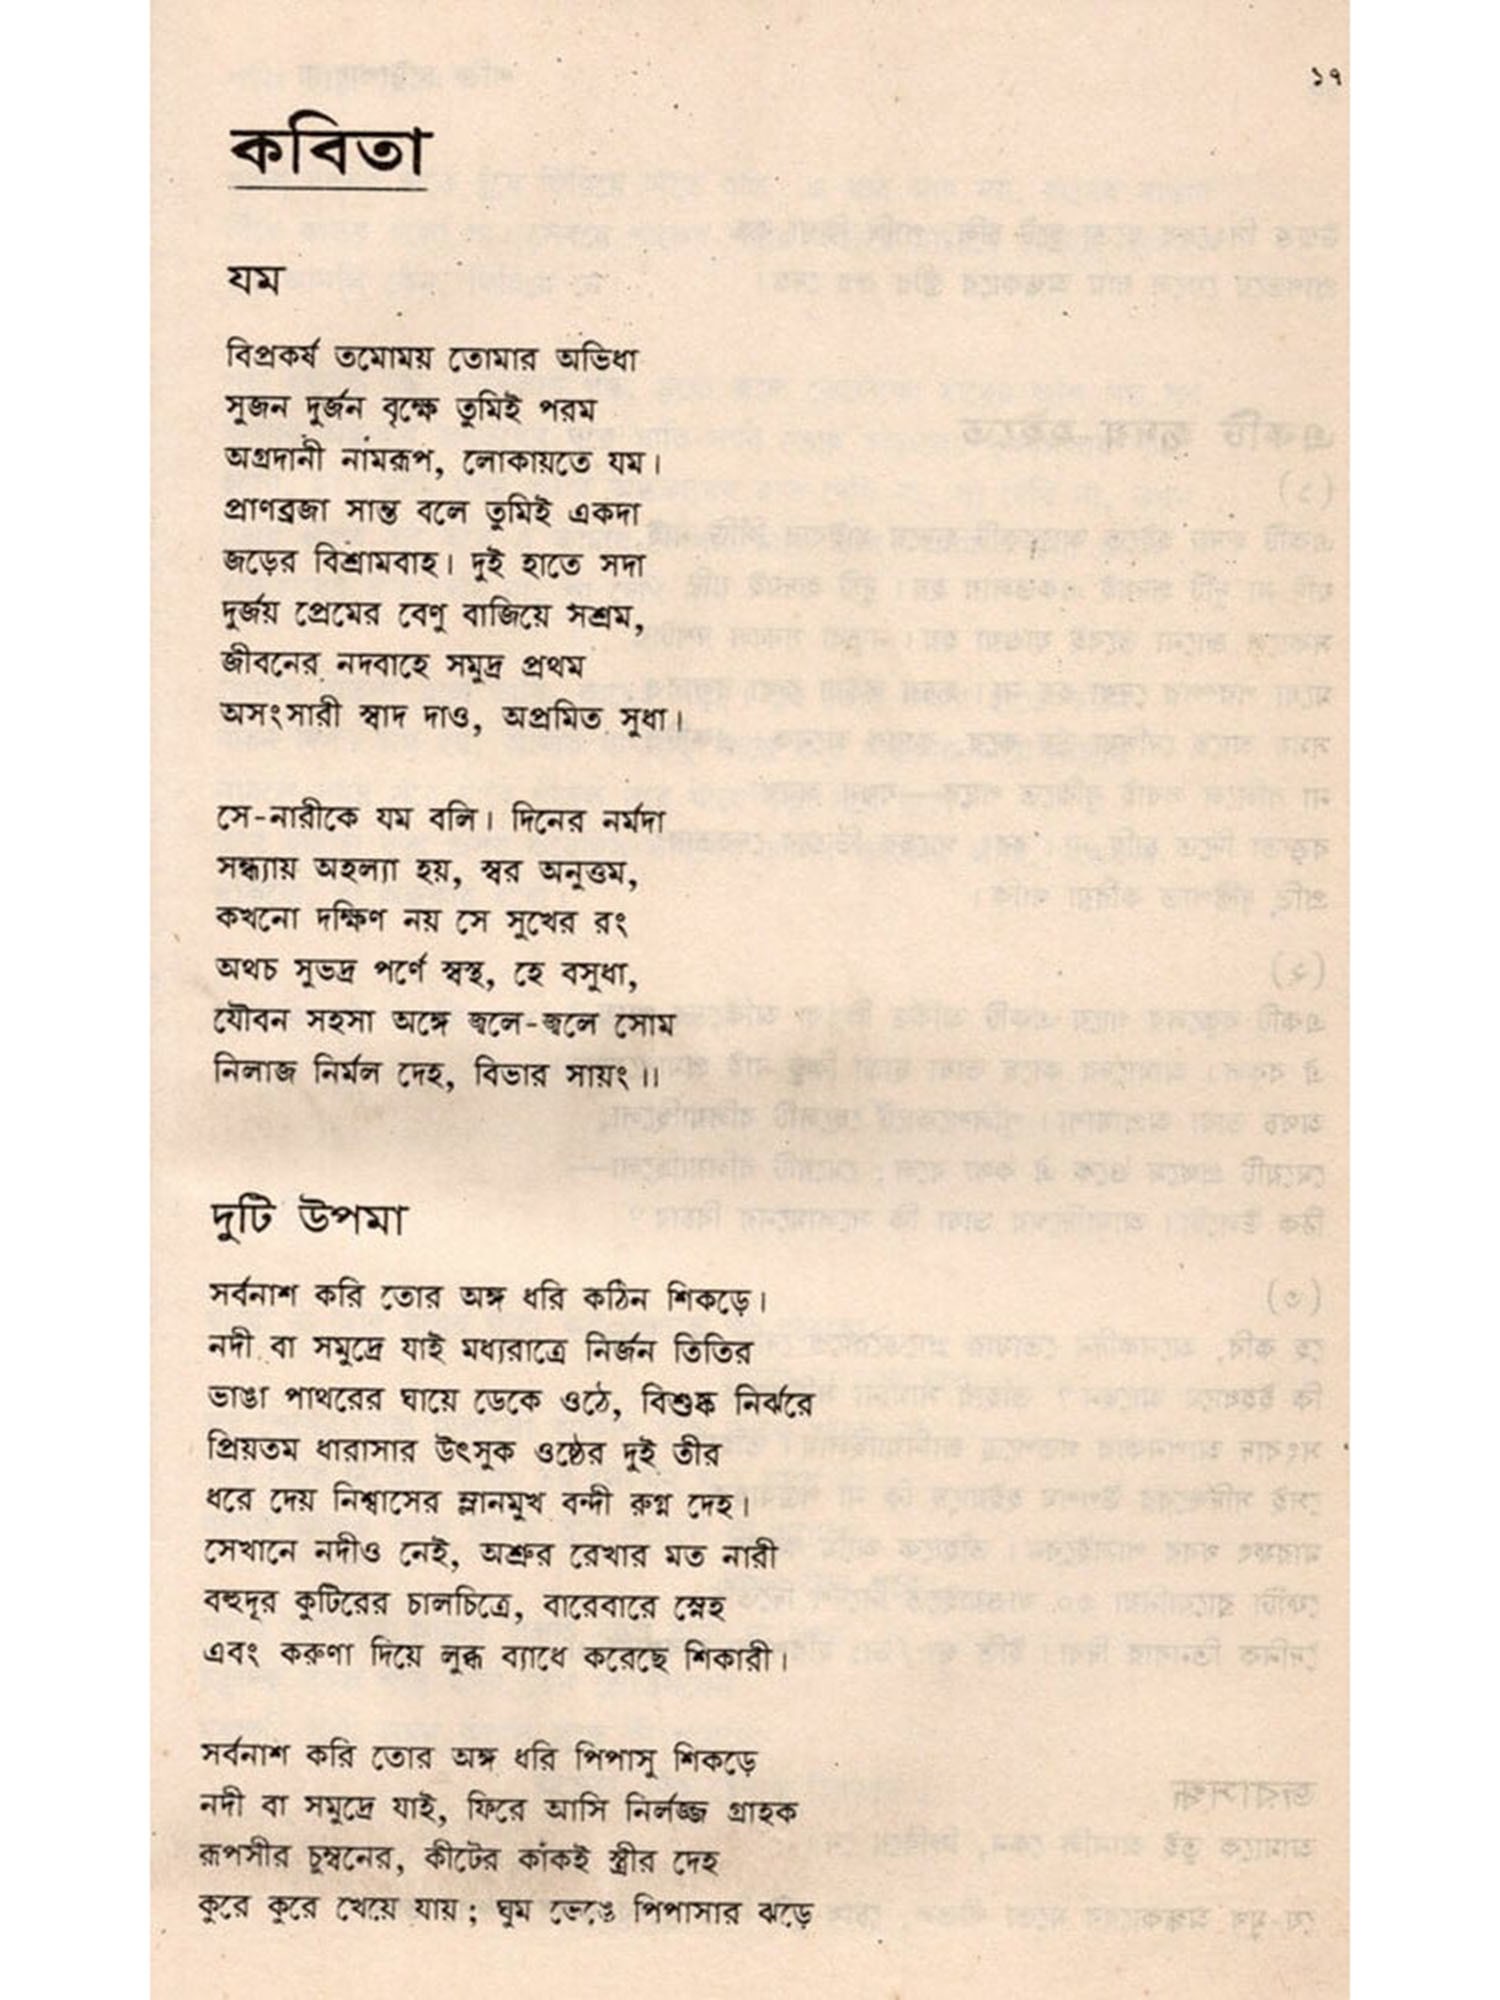 ১৭
কবিতা
যম
বিপ্রকর্ষ তমোময় তোমার অভিধা
সুজন দুর্জন বৃক্ষে তুমিই পরম
অগ্রদানী নামরূপ, লোকায়তে যম।
প্রাণব্রজা সান্ত বলে তুমিই একদা
জড়ের বিশ্রামবাহ। দুই হাতে সদা
দুর্জয় প্রেমের বেণু বাজিয়ে সশ্রম,
জীবনের নদবাহে সমুদ্র প্রথম
অসংসারী স্বাদ দাও, অপ্রমিত সুধা।
সে-নারীকে যম বলি। দিনের নর্মদা
সন্ধ্যায় অহল্যা হয়, স্বর অনুত্তম,
কখনো দক্ষিণ নয় সে সুখের রং
অথচ সুভদ্র পর্ণে স্বস্থ, হে বসুধা,
যৌবন সহসা অঙ্গে জ্বলে-জ্বলে সোম
নিলাজ নির্মল দেহ, বিভার সায়ং।।
দুটি উপমা
সর্বনাশ করি তোর অঙ্গ ধরি কঠিন শিকড়ে।
নদী বা সমুদ্রে যাই মধ্যরাত্রে নির্জন তিতির
ভাঙা পাথরের ঘায়ে ডেকে ওঠে, বিশুষ্ক নির্ঝরে
প্রিয়তম ধারাসার উৎসুক ওষ্ঠের দুই তীর
ধরে দেয় নিশ্বাসের ম্লানমুখ বন্দী রুগ্ন দেহ।
সেখানে নদীও নেই, অশ্রুর রেখার মত নারী
বহুদূর কুটিরের চালচিত্রে, বারেবারে স্নেহ
এবং করুণা দিয়ে লুব্ধ ব্যাধে করেছে শিকারী।
সর্বনাশ করি তোর অঙ্গ ধরি পিপাসু শিকড়ে
নদী বা সমুদ্রে যাই, ফিরে আসি নির্লজ্জ গ্রাহক
রূপসীর চুম্বনের, কীটের কাঁকই স্ত্রীর দেহ
কুরে কুরে খেয়ে যায়; ঘুম ভেঙে পিপাসার ঝড়ে